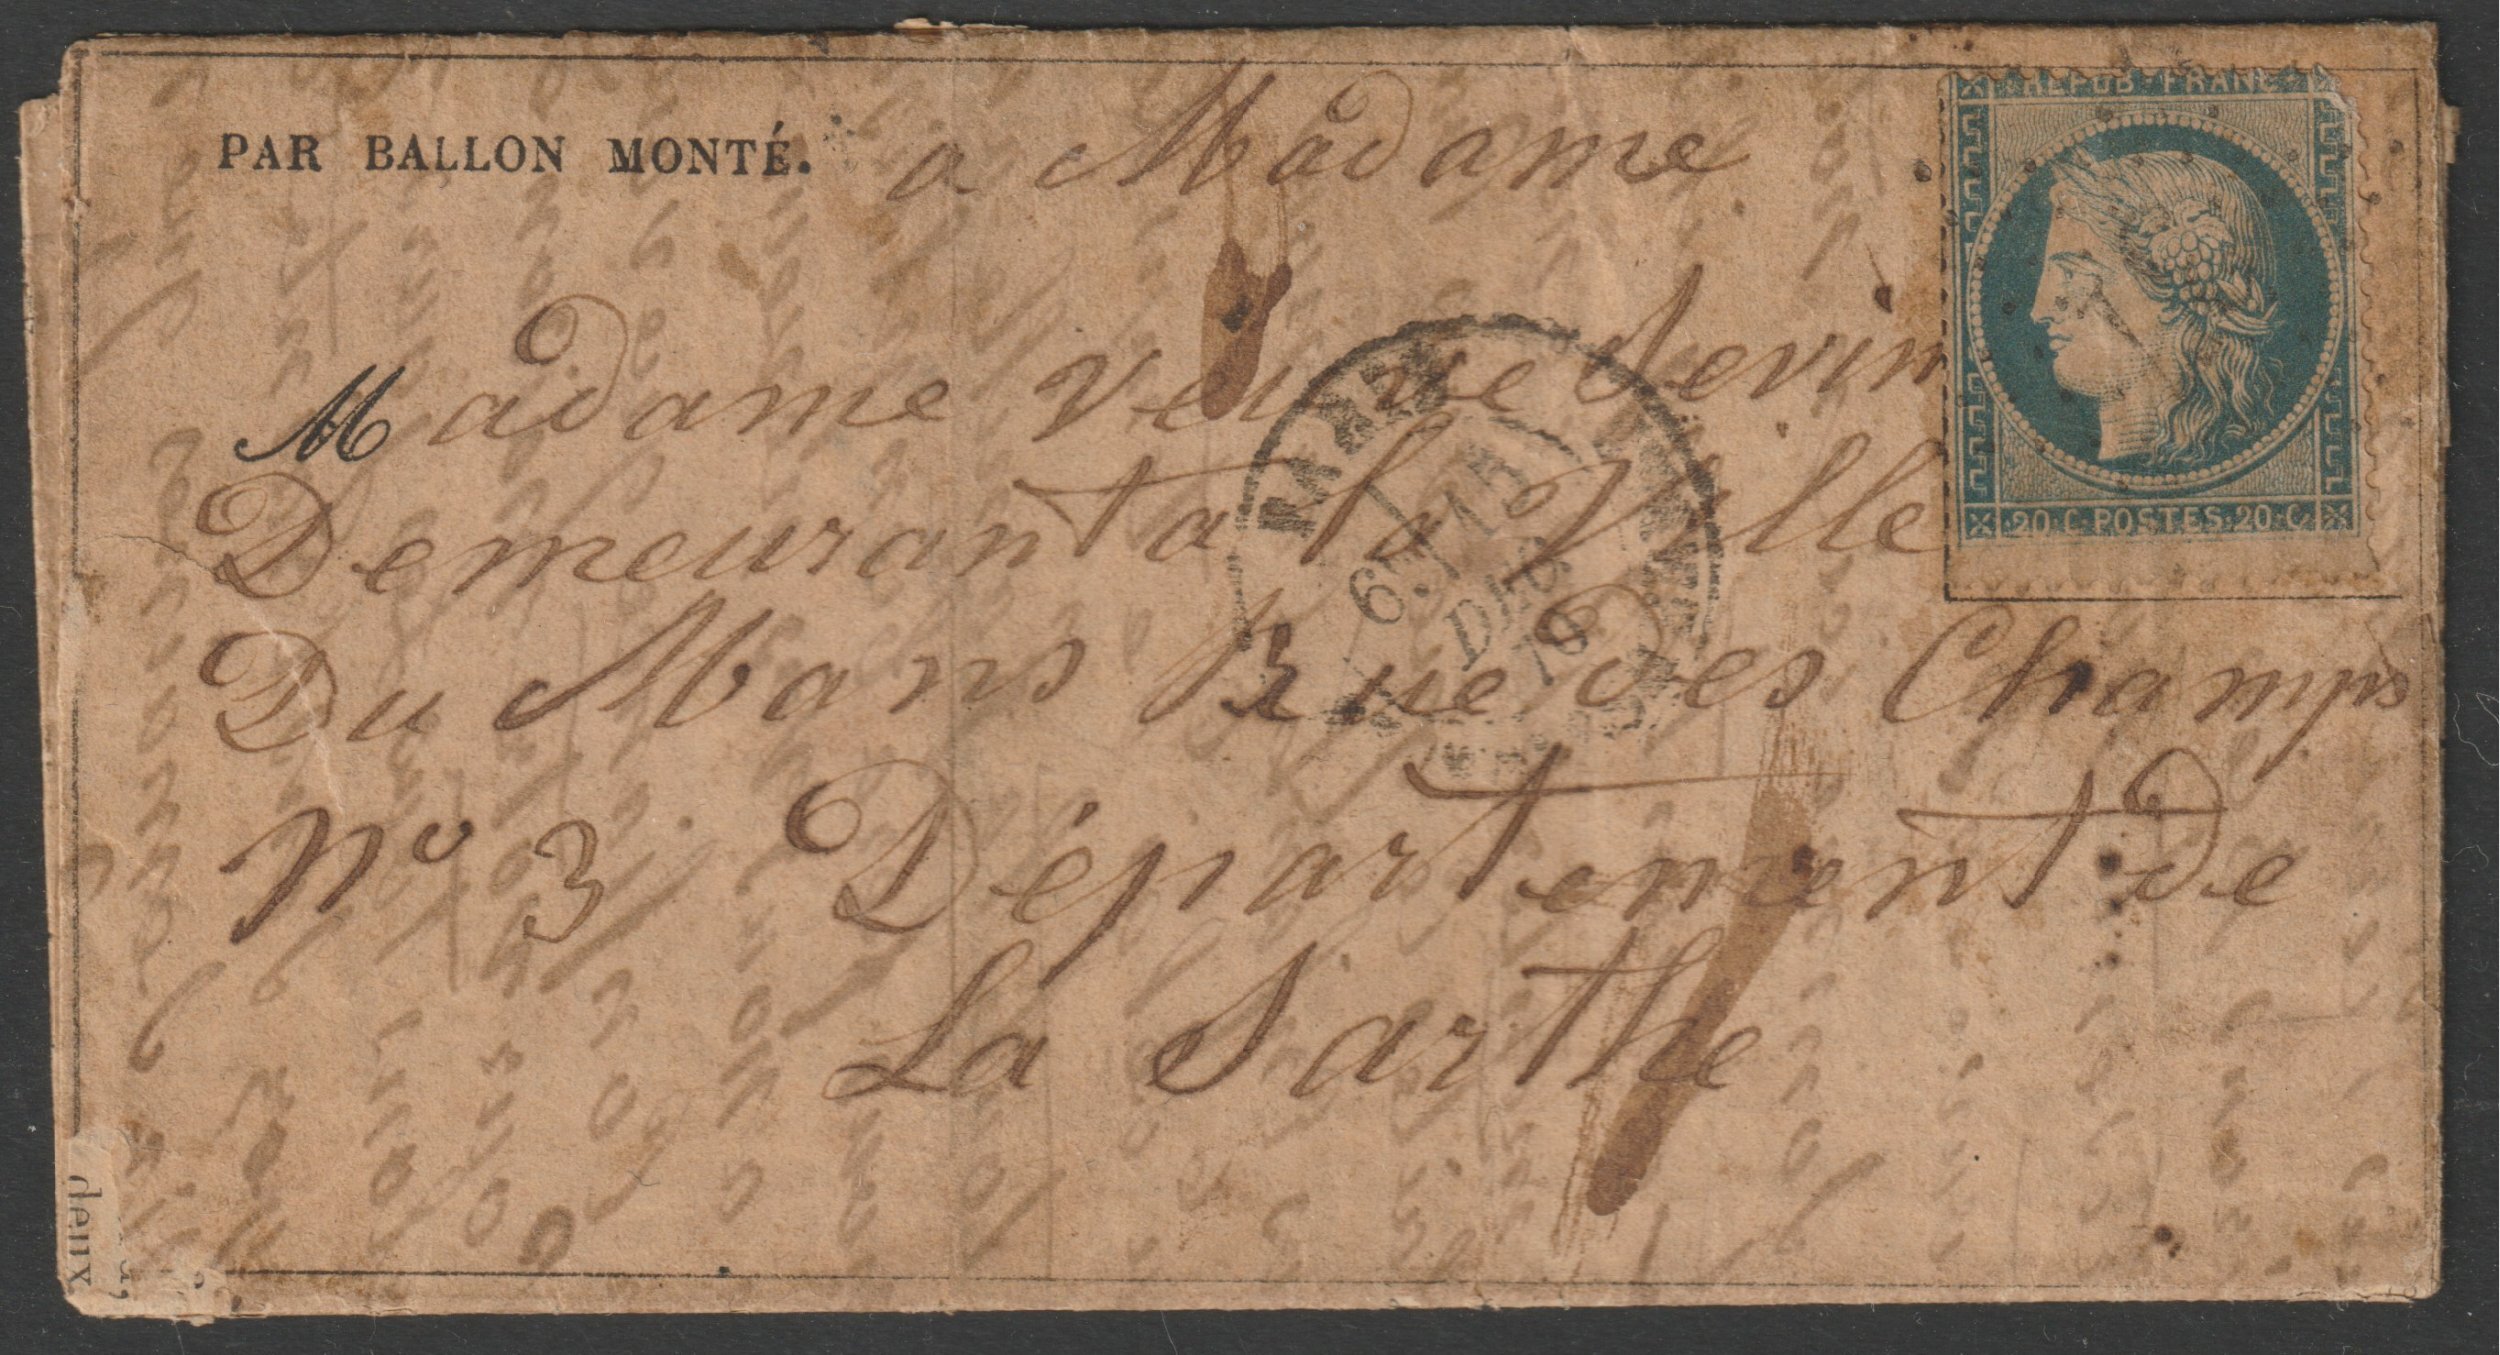 PAR BALLON MONTÉ.
a Madame
REPUB FRANC
20 C POSTES 20 C
Madame veuve Sevin
Demeurant a la Ville
Du Mans Rue Des Champs
No 3 Département De
La Sarthe
PARIS
6E 15
DEC
70
deux